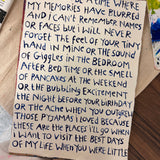 BE A TIME WHERE
MY MEMORIES HAVE BLURRED
AND I CAN'T REMEMBER NAMES
OR FACES BUT I WILL NEVER
FORGET THE FEEL OF YOUR TINY
HAND IN MINE OR THE SOUND
OF GIGGLES IN THE BEDROOM
AFTER BED TIME OR THE SMELL
OF PANCAKES AT THE WEEKEND
OR THE BUBBLING EXCITEMENT
THE NIGHT BEFORE YOUR BIRTHDAY
OR THE ACHE WHEN YOU OUTGREW
THOSE PYJAMAS I LOVED BECAUSE
THESE ARE THE PLACES I'LL GO WHEN
I WANT TO VISIT THE BEST DAYS
OF MY LIFE WHEN YOU WERE LITTLE